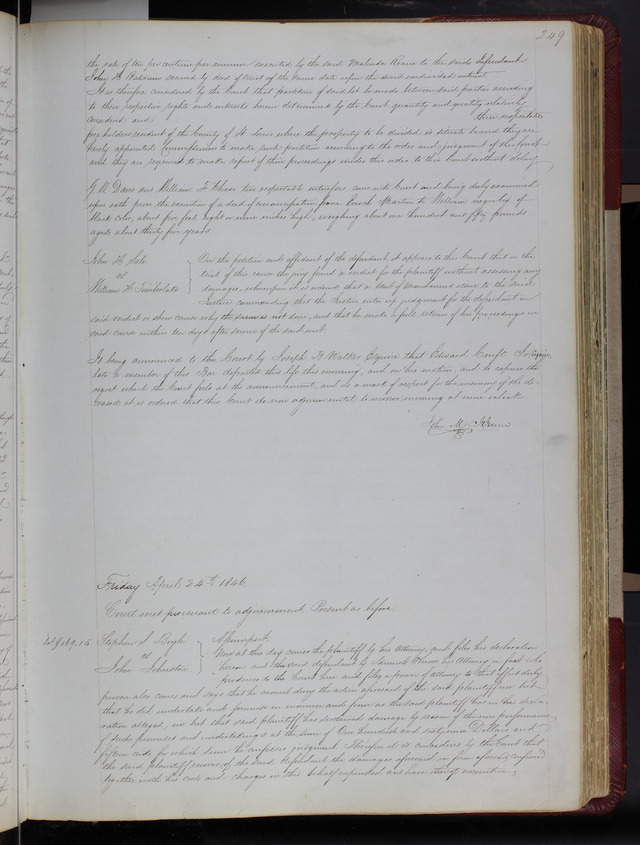 249
the rate of ten per centum per annum executed by the said Malinda Roane to the said defendant
John H. Baldwin secured by deed of trust of the same date upon the said undivided interest.
It is therefore considered by the Court that partition of said lot be made between said parties according
to their respective rights and interests herein determined by the Court quantity and quality relatively
considered and three respectable
freeholders resident of the County of St Louis where the property to be divided is situate be and they are
hereby appointed Commissioners to make such partition according to the order and judgment of this Court
and they are required to make report of their proceedings under this order to this Court without delay
William T. Chase two respectable witnesses came into Court and being duly examined
upon oath prove the execution of a deed of emancipation from Enoch Martin to William negro boy of
black color, about five feet eight or nine inches high, weighing about one hundred and fifty pounds
aged about thirty five years.
John H.
vs
William H. Timberlake
On the petition and affidavit of the defendant it appears to this Court that in the
trial of this cause the jury found a verdict for the plaintiff without assessing any
damages, whereupon it is ordered that a writ of Mandamus issue to the said
Justice commanding that the Justice enter up judgment for the defendant on
said verdict or shew cause why the same is not done, and that he make a full return of his proceedings in
said cause within ten days after service of the said writ.
It being announced to the Court by Joseph B Walker Esquire that Edward
late a member of this Bar departed this life this morning, and on his motion, and to express the
regret which the Court feels at the announcement, and as a mark of respect for the memory of the de-
ceased it is ordered that this Court do now adjourn until to morrow morning at nine oclock
Jno. M. Krum
Friday April 24th 1846
Court met pursuant to adjournment Present as before
169.15
Stephen S. Boyle
vs
John Johnston
Assumpsit
Now at this day comes the plaintiff by his Attorney, and files his declaration
herein and the said defendant by Samuel his Attorney in fact who
produces to the Court here and files a power of attorney to that effect duly
proven also comes and says that he cannot deny the action aforesaid of the said plaintiff nor but
that he did undertake and promise in manner and form as the said plaintiff has in his decla-
ration alleged, nor but that said plaintiff has sustained damage by reason of the non performance
of said promises and undertakings to the sum of One hundred and sixty nine Dollars and
fifteen cents for which sum he confesses judgment. Therefore it is considered by the Court that
the said plaintiff recover of the said defendant the damages aforesaid in form aforesaid confessed
together with his costs and charges in this behalf expended and have thereof execution.